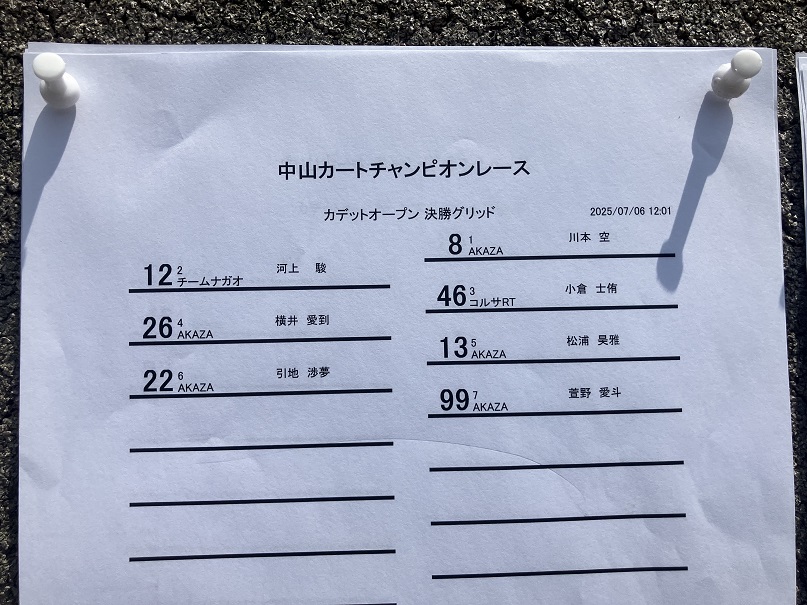 中山カートチャンピオンレース
カデットオープン 決勝グリッド
2025/07/06 12:01
8 1 川本 空
AKAZA
12 2 河上 駿
チームナガオ
46 3 小倉 士侑
コルサRT
26 4 横井 愛到
AKAZA
13 5 松浦 昊雅
AKAZA
22 6 引地 渉夢
AKAZA
99 7 萱野 愛斗
AKAZA